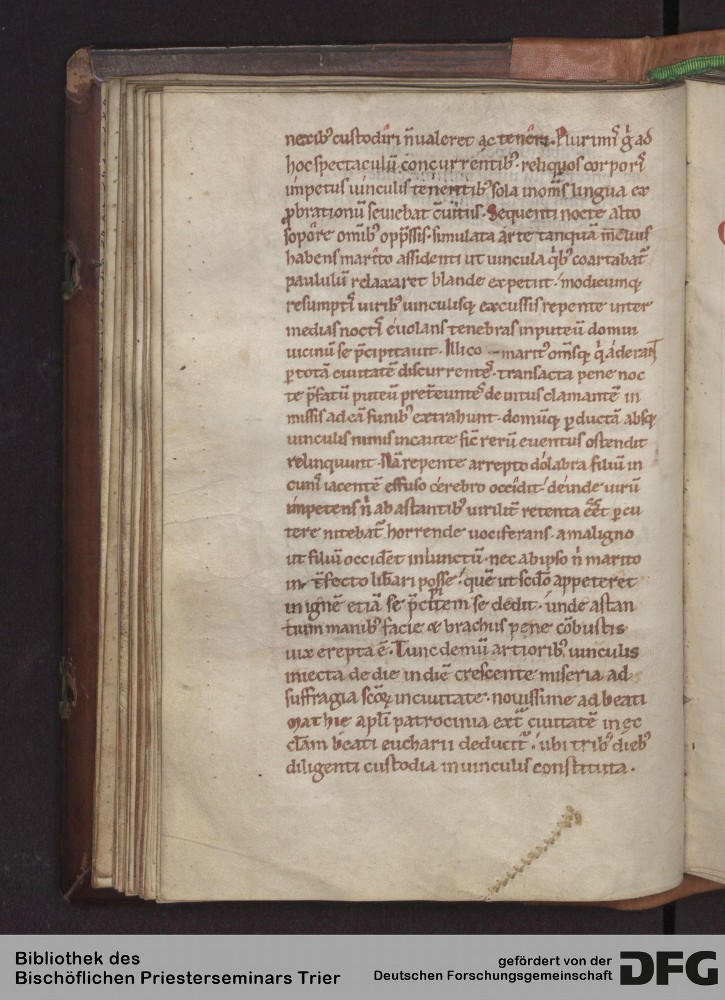 nexib᷒ custodiri n̄ ualeret ac teneri. Plurimis g̊ ad
hoc spectaculū concurrentib᷒. reliquos corporis
impetus uinculis tenentib᷒ sola in om̄s lingua ex
ꝓbrationū seuiebat
Sequenti nocte alto
sopore om̄ib᷒ opp̄ssis. simulata arte tanquā melius
habens marito assidenti ut uincula q̇b᷒ coartabat᷑
paululū relaxaret blande expetiit. modicumq;
resumptis uirib᷒ uinculisq; excussis repente inter
medias noctis euolans tenebras in puteū domui
uicinū se p̄cipitauit. Ilico marit᷒ om̄sq; q̇ aderant
ꝑ totā ciuitatē discurrentes. transacta pene noc
te p̄fatū puteū pret̄euntes de intus clamantē in
missis ad eā funib᷒ extrahunt. domūq; ꝑductā absq;
uinculis nimis incaute sic̄ rerū euentus ostendit
relinquunt. Nā repente arrepto dolabra filiū in
cunis iacentē effuso cerebro occidit. deinde uirū
impetens n̄ ab astantibus uirilit̄ retenta eēt ꝑcu
tere nitebat᷑ horrende uociferans. a maligno
ut filiū occidet iniunctū. nec ab ipso n̄ marito
int̄fecto lib̄ari posse. quē ut sc̄do appeteret
in ignē etiā se p̄cipitem se dedit. unde astan
tium manib᷒ facie & brachiis pene cōbustis
uix erepta ē. Tunc demū artiorib᷒ uinculis
iniecta de die in diē crescente miseria ad
suffragia sc̄oꝝ in ciuitate. nouissime ad beati
Mathie apl̄i patrocinia ext̄ ciuitatē in ec
clām beati eucharii deducit᷑. ubi trib᷒ dieb᷒
diligenti custodia in uinculis constituta.
Bibliothek des
Bischöflichen Priesterseminars Trier
gefördert von der
Deutschen Forschungsgemeinschaft
DFG